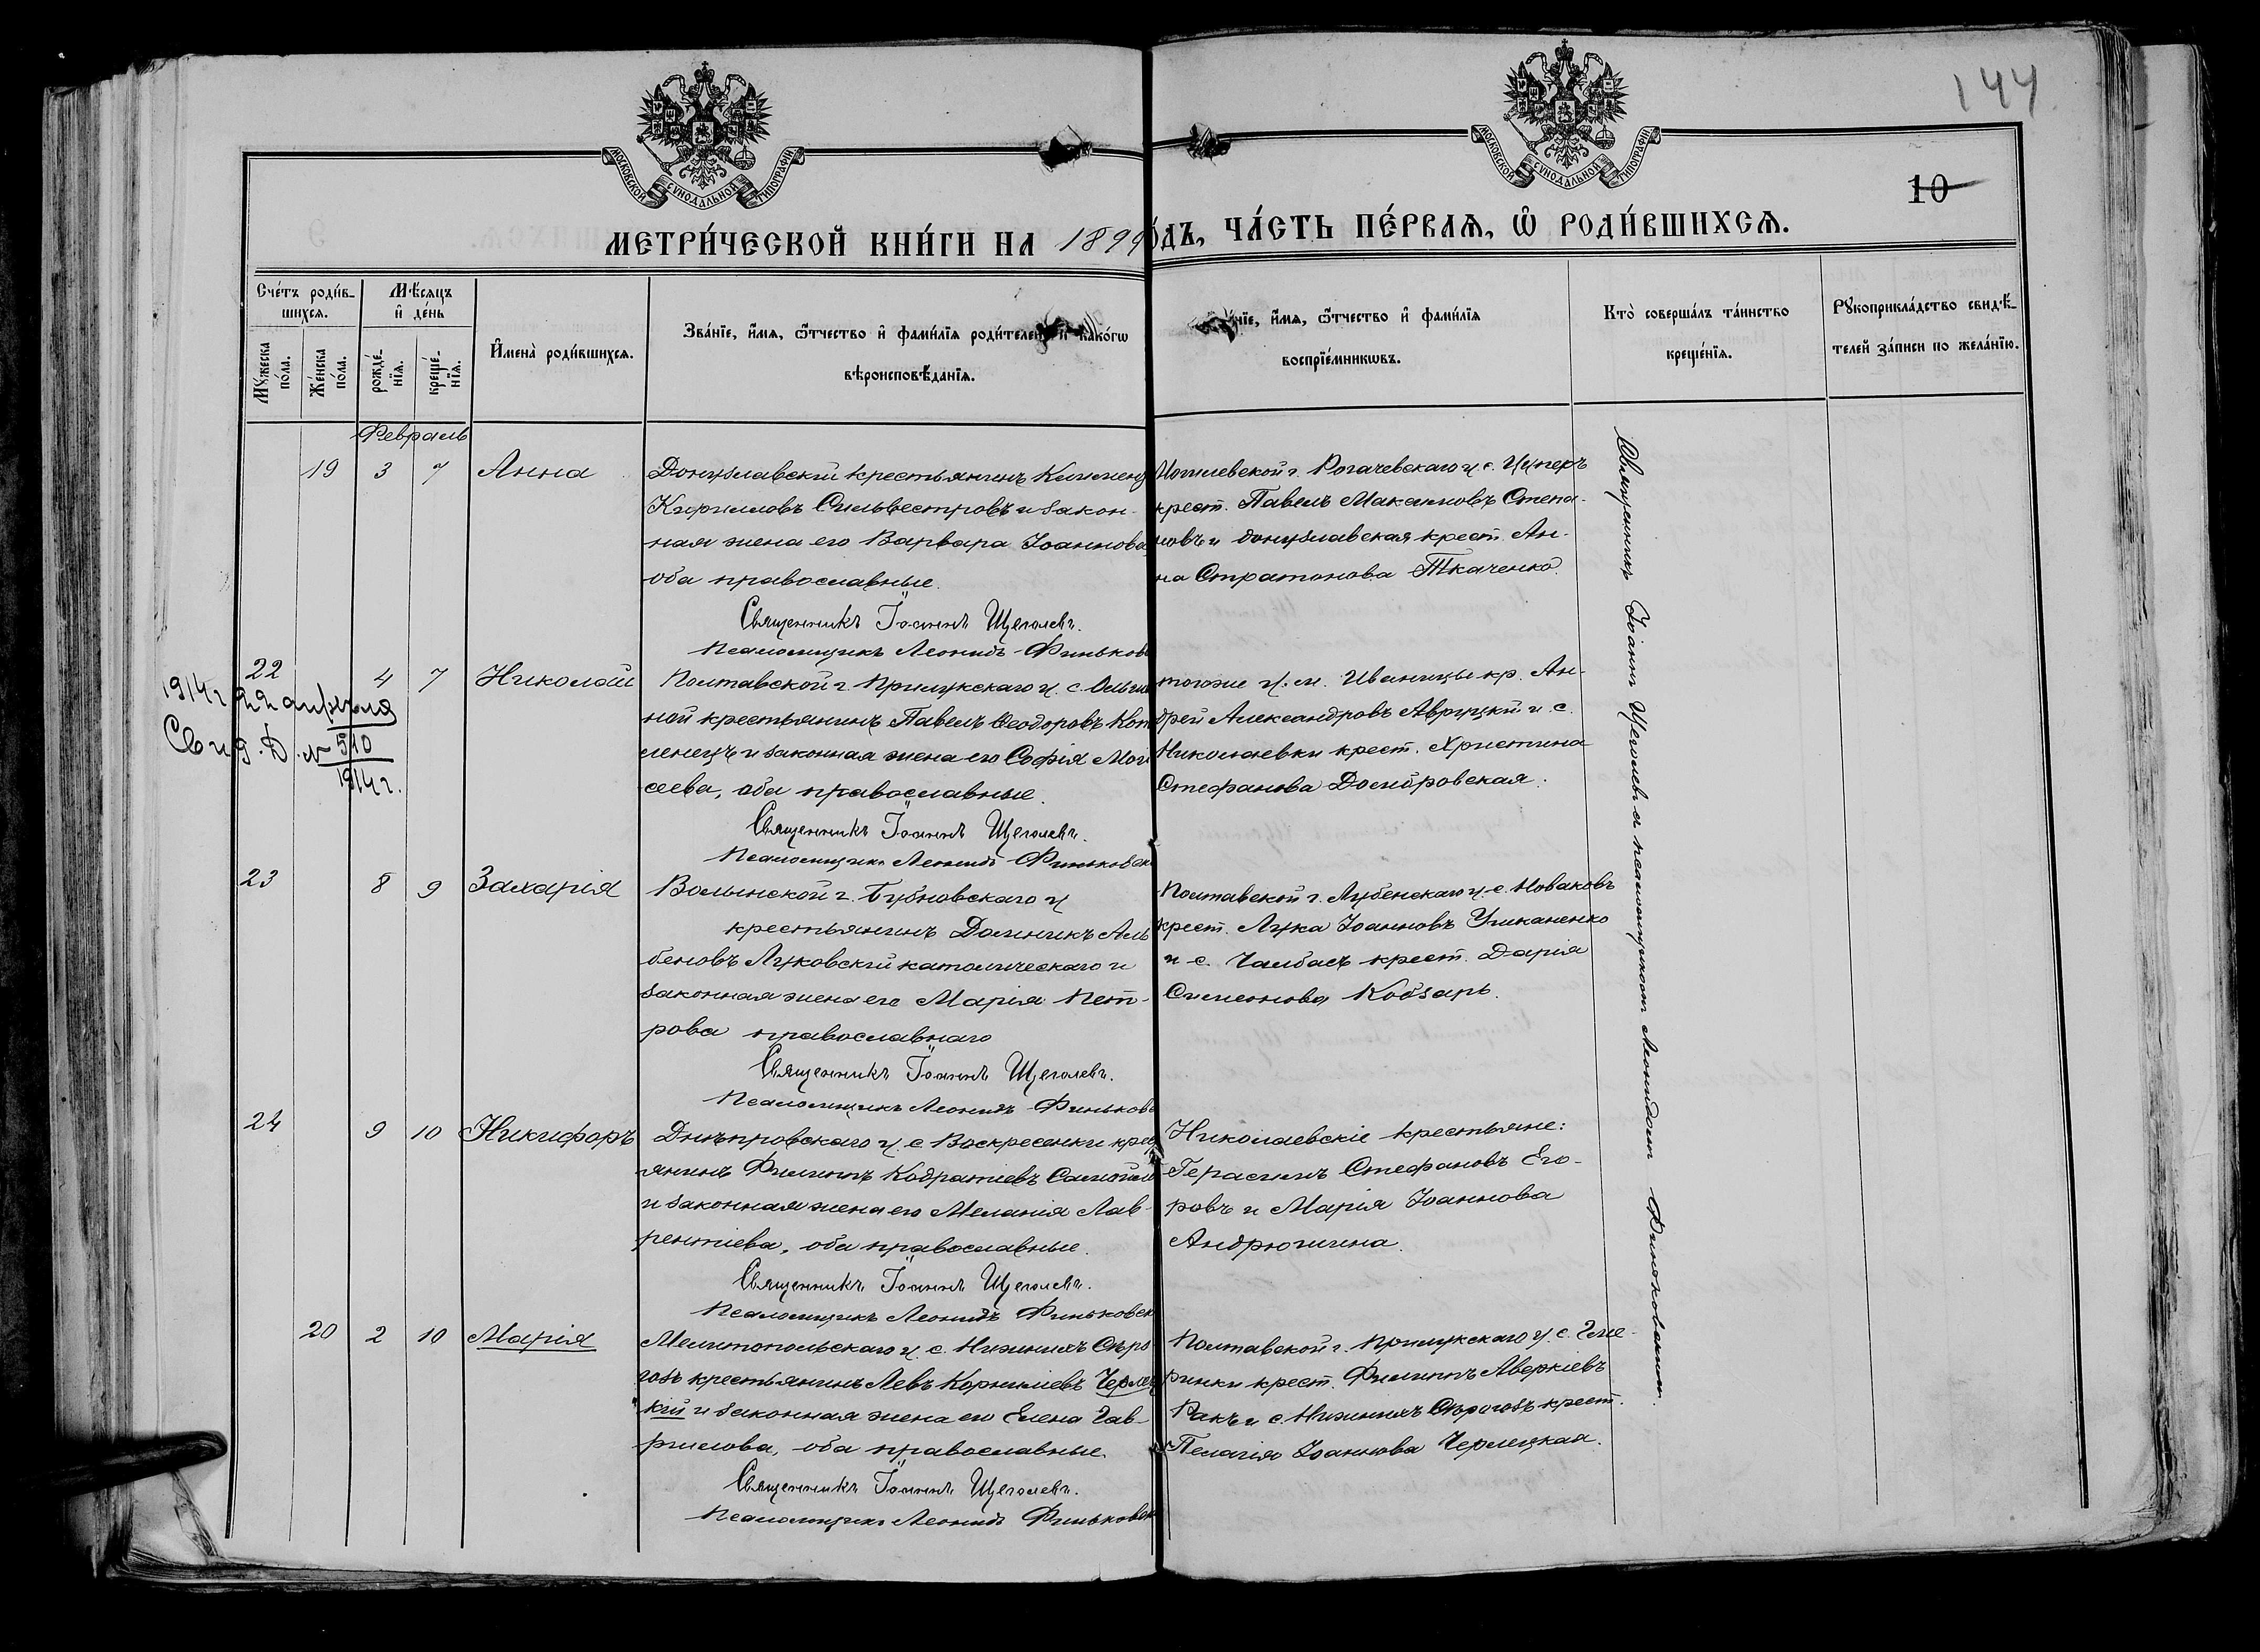 144
МОСКОВСКОЙ СѴНОДАЛЬНОЙ ТИПОГРАФІИ
МОСКОВСКОЙ СѴНОДАЛЬНОЙ ТИПОГРАФІИ
10
МЕТРИ́ЧЕСКОЙ КНИ́ГИ НА 1899
О́ДЪ, ЧА́СТЬ ПЕ́РВАѦ, Ѡ҆ РОДИ́ВШИХСѦ.
Сче́тъ роди́в-
шихсѧ.
Мꙋ́жеска по́ла.
Же́нска по́ла.
Мѣ́сѧцъ
и҆ де́нь
рожде́-нїѧ.
креще́-нїѧ.
И҆мена̀ роди́вшихсѧ.
Зва́нїе, и҆́мѧ, ѻ҆́тчество и҆ фами́лїѧ роди́телей, и҆ како́гѡ
вѣроисповѣ́данїѧ.
нїе, и҆́мѧ, ѻ҆́тчество и҆ фами́лїѧ
воспрїе́мникѡвъ.
Кто̀ соверша́лъ та́инство
креще́нїѧ.
Рꙋкоприкла́дство свидѣ́-
телей за́писи по жела́нїю.
Февраль
19 3 7 Анна
Донузлавскій крестьянинъ Климент
Кирилловъ Сильвестровъ и закон-
ная жена его Варвара Іоаннова
оба православные.
Священникъ Іоаннъ Щеголевъ.
Псаломщикъ Леонидъ Финьков
Могилевской г. Рогачевскаго у. с.
крест. Павелъ Максимовъ Степа-
новъ и донузлавская крест. Ан-
на Стратонова Ткаченко.
22 4 7 Николай
1914 г. 22 апрѣля
Свид. Д. № 510
1914 г.
Полтавской г. Прилукскаго у. с. Ольши
ной крестьянинъ Павелъ Ѳеодоровъ Кот
ленецъ и законная жена его Софія Мои
сеева, оба православные.
Священникъ Іоаннъ Щеголевъ.
Псаломщикъ Леонидъ Финьковск
тогоже у. м. Иваницы кр. Ан-
дрей Александровъ Авруцкій и с.
Николаевки крест. Христина
Стефанова Домбровская.
23 8 9 Захарія
Волынской г. Дубновскаго у
крестьянинъ Доминикъ Аль
беновъ Луковскій католическаго и
законная жена его Марія Пет-
рова православнаго
Священникъ Іоаннъ Щеголевъ.
Псаломщикъ Леонидъ Финьков
Полтавской г. Лубенскаго у. с. Новаковъ
крест. Лука Іоанновъ
и с. Чалбасъ крест. Дарія
Симеонова Кобзарь.
24 9 10 Никифоръ
Днѣпровскаго у. с. Воскресенки крес
янинъ Филиппъ Кодратіевъ Самойл
и законная жена его Меланія Лав-
рентіева, оба православные.
Священникъ Іоаннъ Щеголевъ.
Псаломщикъ Леонидъ Финьковск
Николаевскіе крестьяне:
Герасимъ Стефановъ Его-
ровъ и Марія Іоаннова
Андрюшина.
20 2 10 Марія
Мелитопольскаго у. с. Нижнихъ Сѣро
гозъ крестьянинъ Левъ Корниліевъ Черлец
кій и законная жена его Елена Гав-
риилова, оба православные.
Священникъ Іоаннъ Щеголевъ.
Псаломщикъ Леонидъ Финьковск
Полтавской г. Прилукскаго у. с. Гме-
ринки крест. Филиппъ Аверкіевъ
Ракъ и с. Нижнихъ Сѣрогозъ крест.
Пелагія Іоаннова Черлецкая.
Священникъ Іоаннъ Щеголевъ и псаломщикомъ Леонидомъ Финьковскимъ.